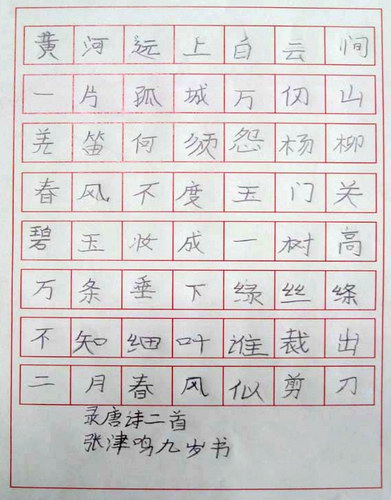 黄河远上白云间
一片孤城万仞山
羌笛何须怨杨柳
春风不度玉门关
碧玉妆成一树高
万条垂下绿丝绦
不知细叶谁裁出
二月春风似剪刀
录唐诗二首
张津鸣九岁书